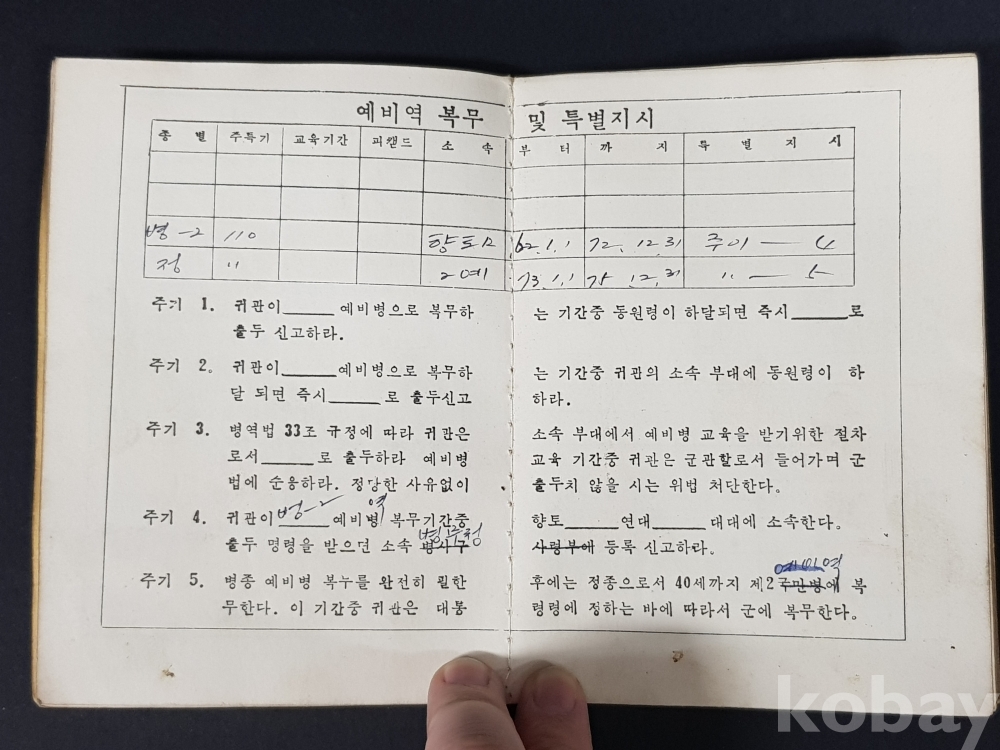 예비역 복무 및 특별지시
종 별 주특기 교육기간 피캔드 소 속 부 터 까 지 특 별 지 시
병-2 110 향토 62.1.1 72.12.31 주이 — 4
정 " 2예 73.1.1 75.12.31 " — 5
주기 1. 귀관이______예비병으로 복무하는 기간중 동원령이 하달되면 즉시______로
출두 신고하라.
주기 2. 귀관이______예비병으로 복무하는 기간중 귀관의 소속 부대에 동원령이 하
달 되면 즉시______로 출두신고하라.
주기 3. 병역법 33조 규정에 따라 귀관은 소속 부대에서 예비병 교육을 받기위한 절차
로서______로 출두하라 예비병 교육 기간중 귀관은 군관할로서 들어가며 군
법에 순응하라. 정당한 사유없이 출두치 않을 시는 위법 처단한다.
병-2 역
주기 4. 귀관이______예비병 복무기간중 향토______연대______대대에 소속한다.
병무청
출두 명령을 받으면 소속 병사구사령부애 등록 신고하라.
예비역
주기 5. 병종 예비병 복누를 완전히 필한 후에는 정종으로서 40세까지 제2 주만병에 복
무한다. 이 기간중 귀관은 대통령령에 정하는 바에 따라서 군에 복무한다.
kobay